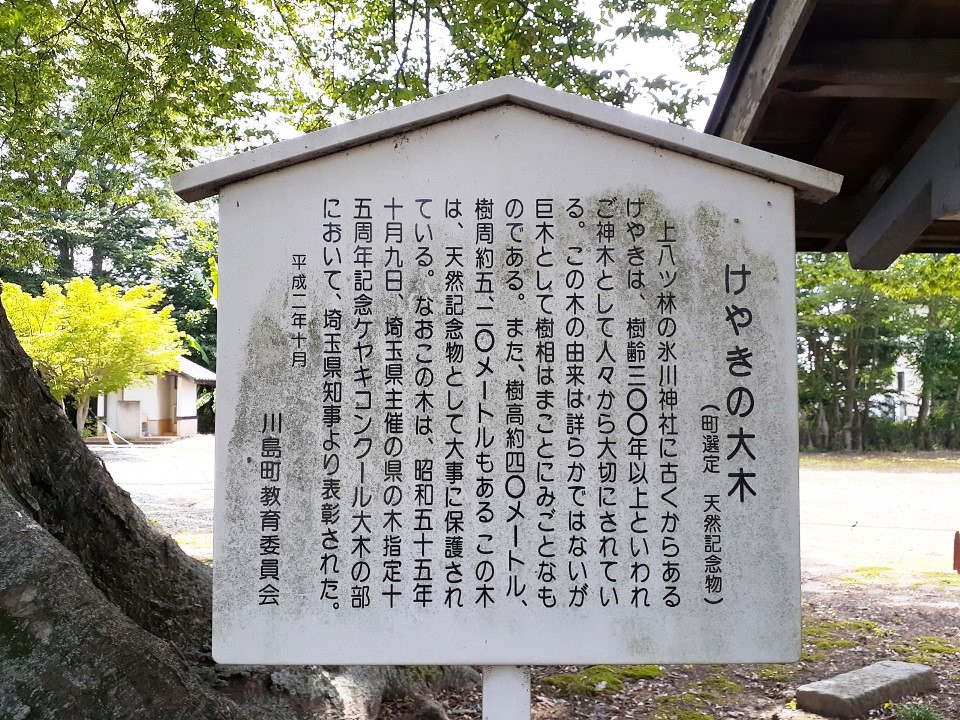 けやきの大木
（町選定　天然記念物）
上八ツ林の氷川神社に古くからある
けやきは、樹齢三〇〇年以上といわれ
ご神木として人々から大切にされてい
る。この木の由来は詳らかではないが
巨木として樹相はまことにみごとなも
のである。また、樹高約四〇メートル、
樹周約五、二〇メートルもあるこの木
は、天然記念物として大事に保護され
ている。なおこの木は、昭和五十五年
十月九日、埼玉県主催の県の木指定十
五周年記念ケヤキコンクール大木の部
において、埼玉県知事より表彰された。
平成二年十月
川島町教育委員会